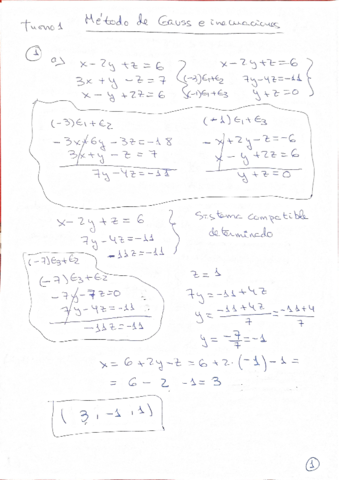 Turno 1 Método de Gauss e inecuaciones
① a) x-2y+z=6
3x+y-z=7
x-y+2z=6
(-3)E1+E2
(-1)E1+E3
x-2y+z=6
7y-4z=-11
y+z=0
(-3)E1+E2
-3x+6y-3z=-18
3x+y-z=7
7y-4z=-11
(-1)E1+E3
-x+2y-z=-6
x-y+2z=6
y+z=0
x-2y+z=6
7y-4z=-11
-11z=-11
Sistema compatible
determinado
(-7)E3+E2
(-7)E3+E2
-7y-7z=0
7y-4z=-11
-11z=-11
z=1
7y=-11+4z
y=-11+4z/7=-11+4/7
y=-7/7=-1
x=6+2y-z=6+2·(-1)-1=
=6-2-1=3
(3,-1,1)
①